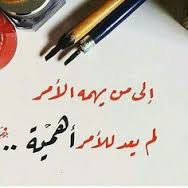 إلى من يهمه الأمر
لم يعد للأمر أهمية ..